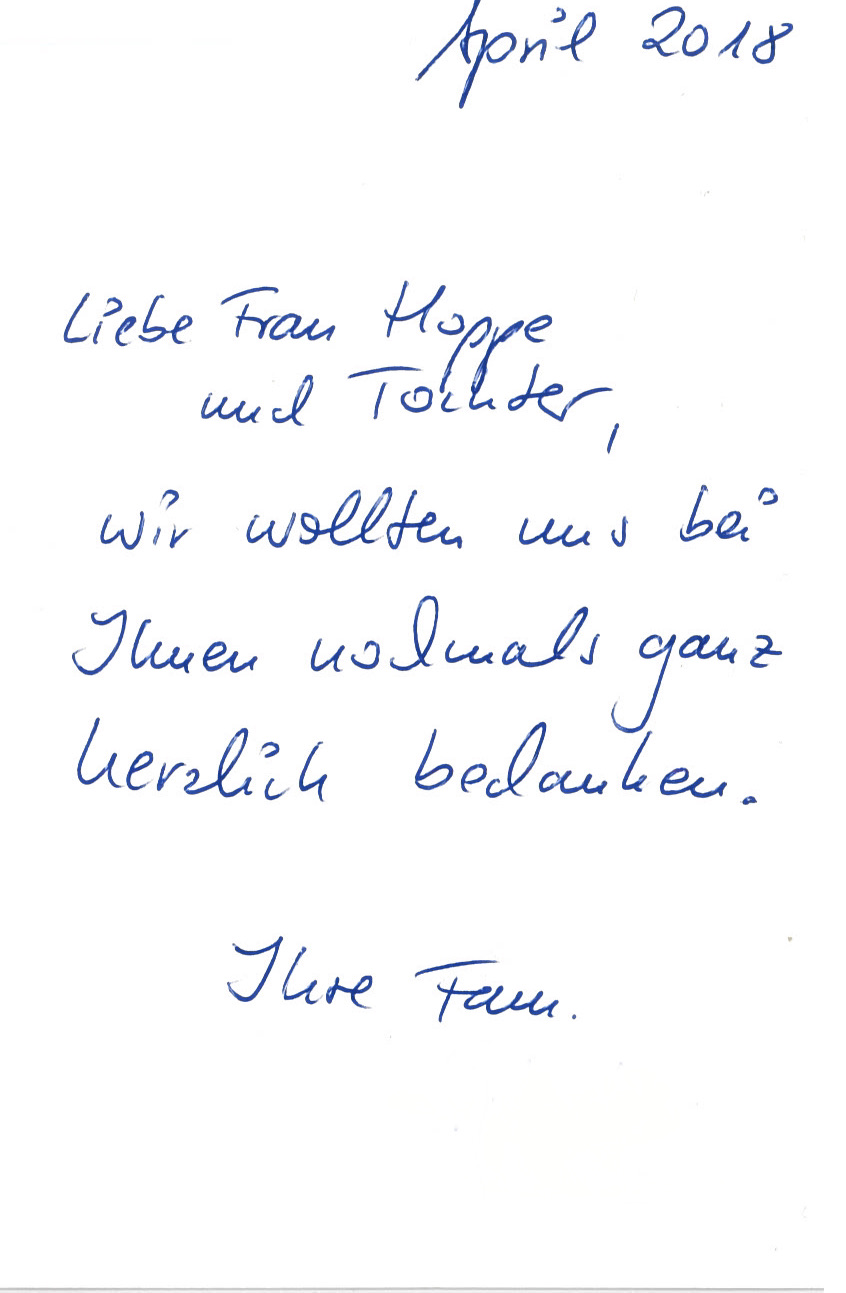 April 2018
Liebe Frau Hoppe
und Tochter,
wir wollten uns bei
Ihnen nochmals ganz
herzlich bedanken.
Ihre Fam.